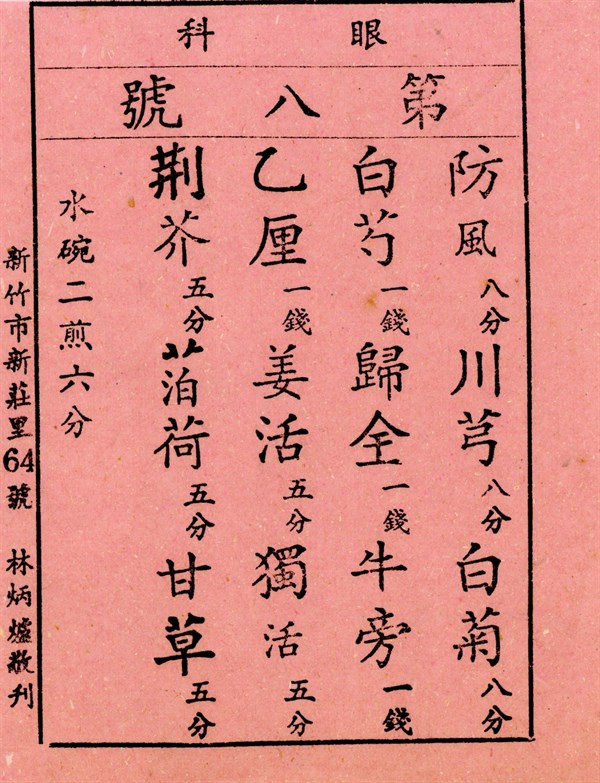 眼科
第八號
防風八分川芎八分白菊八分
白芍一錢歸全一錢牛旁一錢
乙厘一錢姜活五分獨活五分
荆芥五分萡荷五分甘草五分
水碗二煎六分
新竹市新莊里64號 林炳爐敬刊